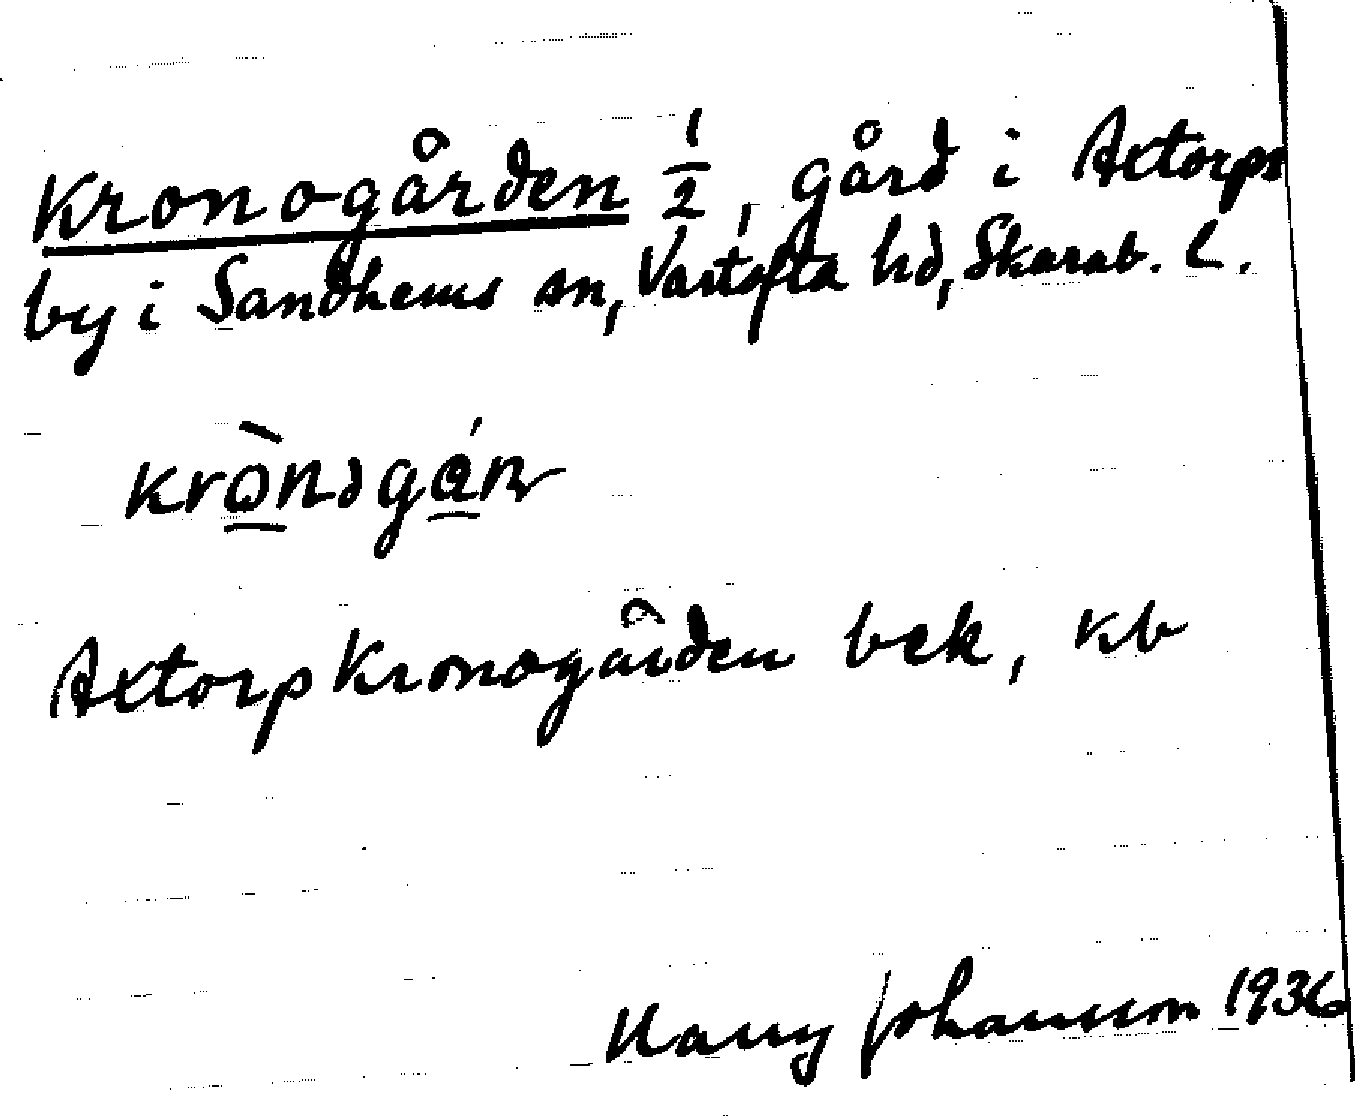 Kronogården 1/2, gård i Axtorps
by i Sandhems sn, Vartofta hd, Skarab. l.
krò̲nəgá̲ɳ
Axtorp Kronogården bek, kb
Harry Johansson 1936